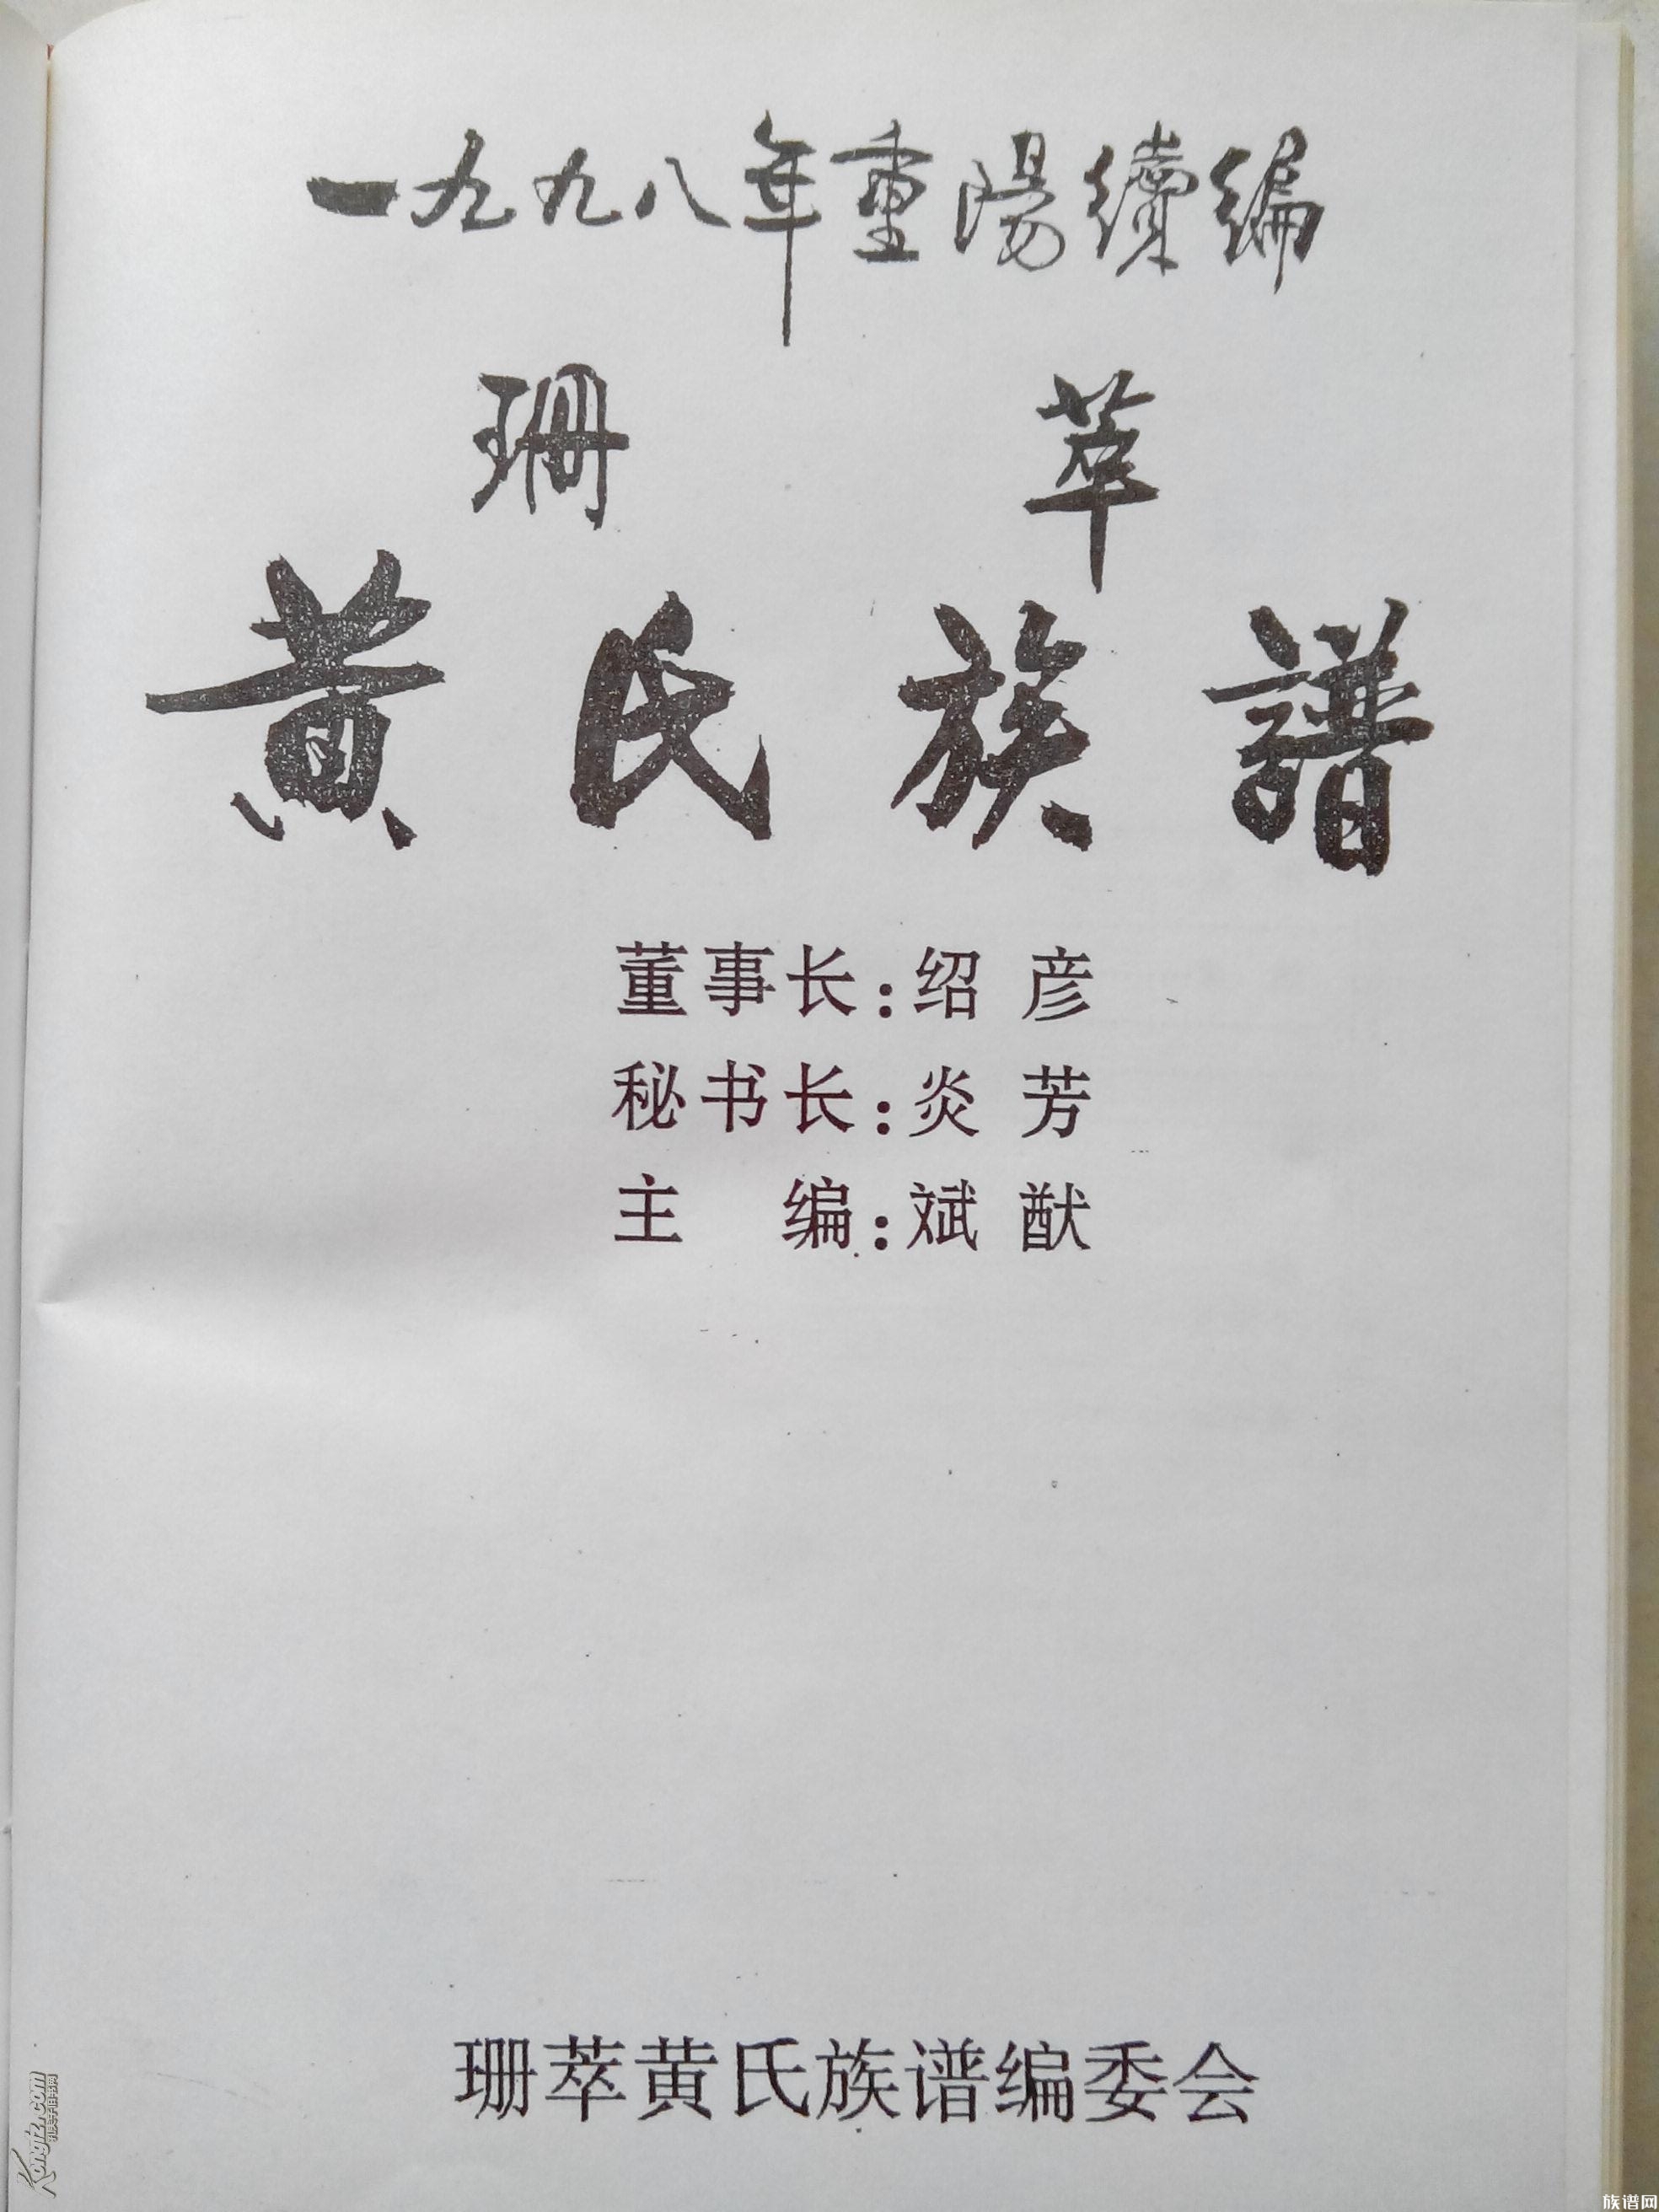 一九九八年重陽續编
珊萃
黄氏族譜
董事长:绍彦
秘书长:炎芳
主编:斌猷
珊萃黄氏族谱编委会
Kongfz.com
孔夫子旧书网
族谱网